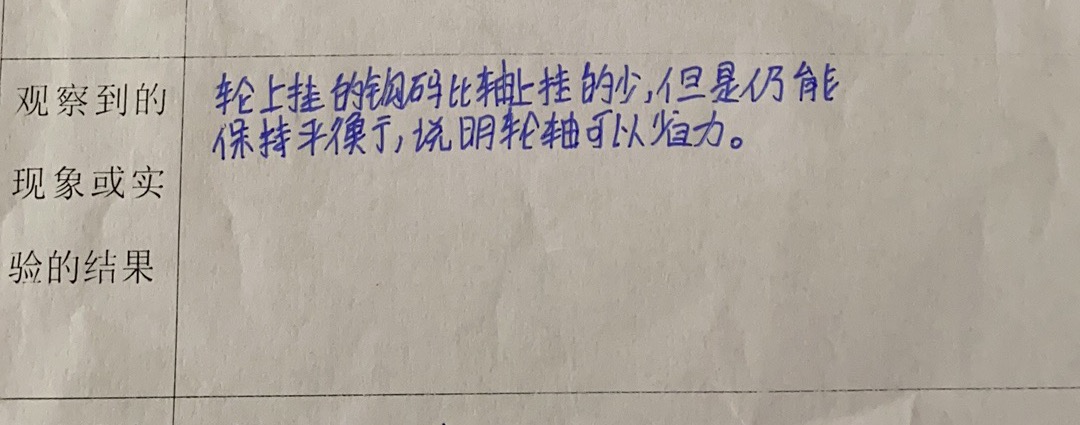 观察到的
现象或实
验的结果
轮上挂的钩码比轴上挂的少,但是仍能
保持平衡,说明轮轴可以省力。